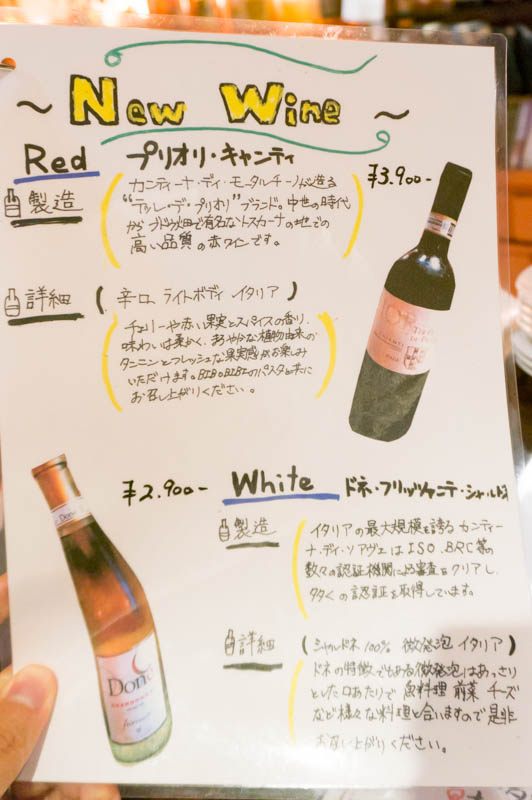 ~ New Wine ~
Red プリオリ・キャンティ
¥3,900-
製造
カンティーナ・ディ・モンタルチーノが造る
"テッレ・デ・プリオリ"ブランド。中世の時代
から ブドウ畑で有名なトスカーナの地での
高い品質の赤ワインです。
詳細
( 辛口、ライトボディ イタリア )
チェリーや赤い果実とスパイスの香り、
味わいは柔かく、あざやかな植物由来の
タンニンとフレッシュな果実感がお楽しみ
いただけます。BIBOBIBIのパスタと共に
お召し上がりください。
¥2,900-
White ドネ・フリッツァンテ・シャルドネ
製造
イタリアの最大規模を誇る カンティー
ナ・ディ・ソアヴェは ISO、BRC等の
数々の認証機関による審査をクリアし
多くの認証を取得しています。
詳細
(シャルドネ 100% 微発泡 イタリア)
ドネの特徴でもある微発泡はあっさり
とした口あたりで 魚料理 前菜 チーズ
など様々な料理と合いますので是非
お召し上がりください。
CHIANTI
Donè
CHARDONNAY